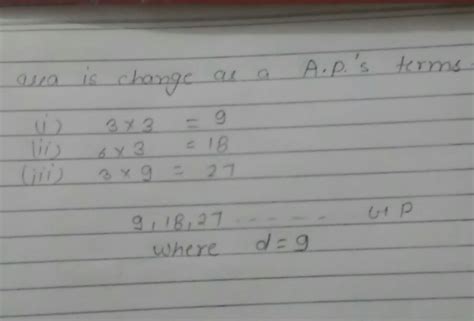 area is change as a A.P.'s terms.
(i) 3 × 3 = 9
(ii) 6 × 3 = 18
(iii) 3 × 9 = 27
9, 18, 27 ------
where d = 9